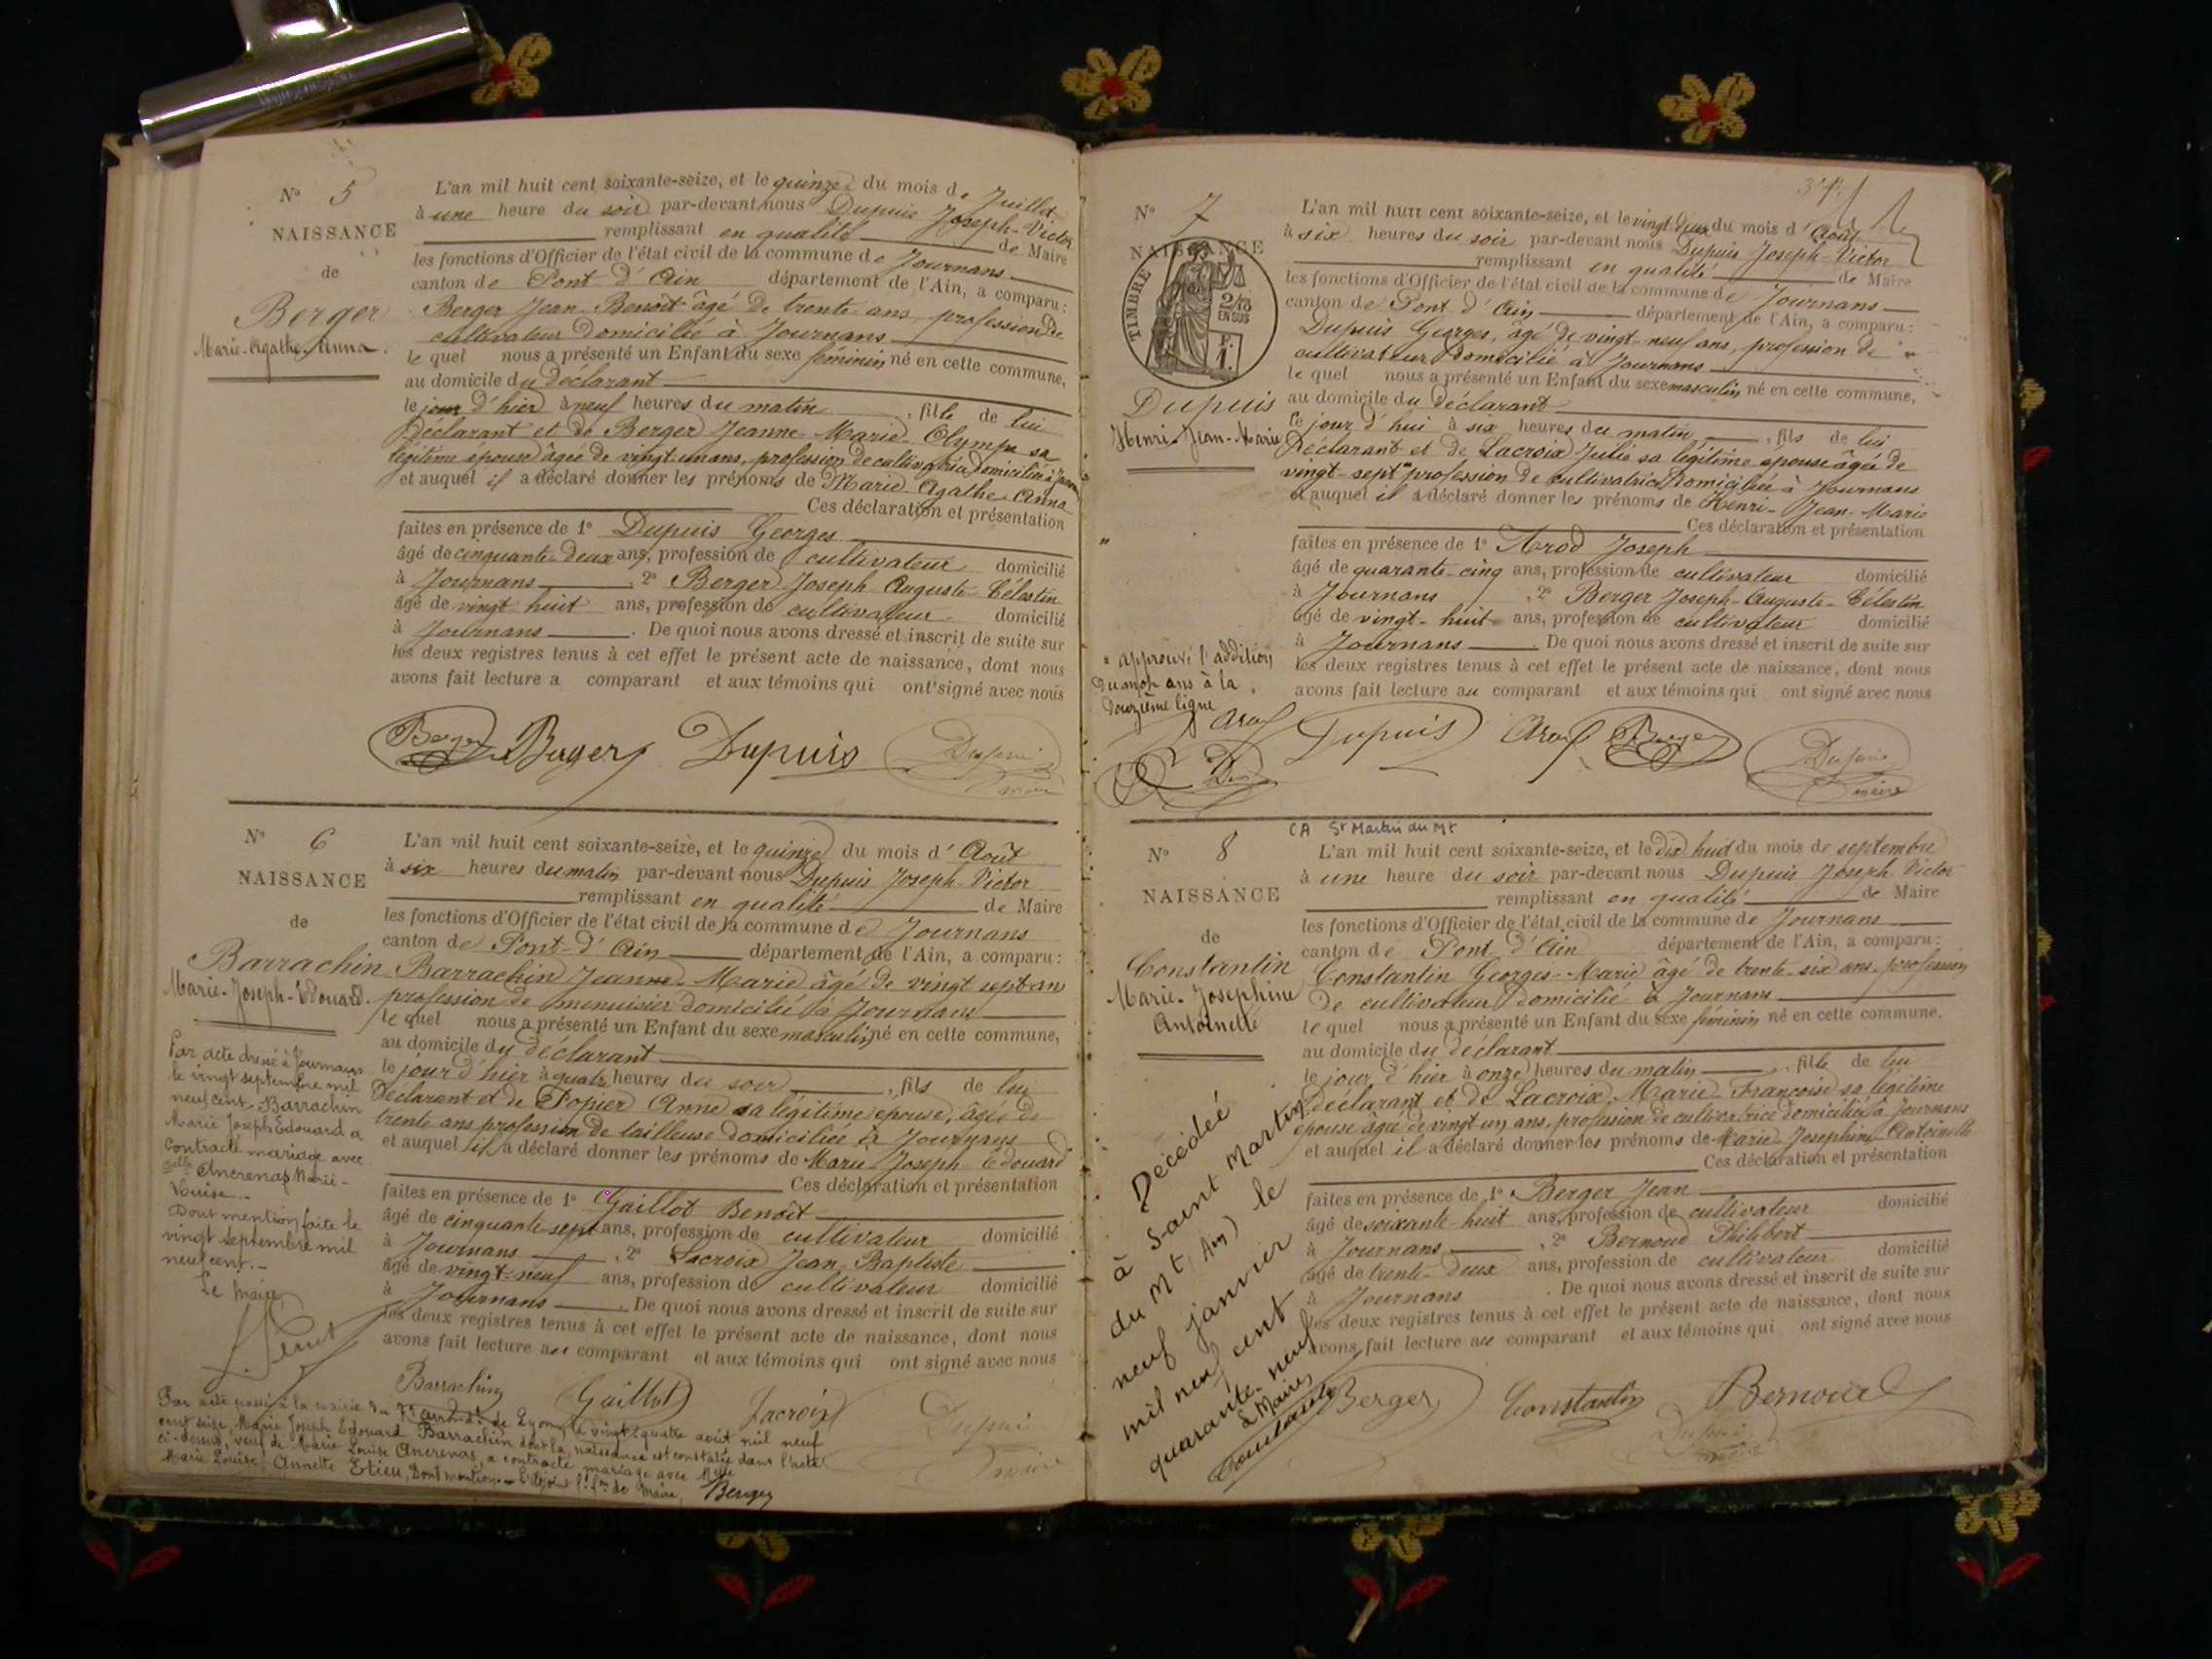 N° 5
NAISSANCE
de
Berger
Marie-Agathe-Anna.
L'an mil huit cent soixante-seize, et le quinze du mois de Juillet
à une heure du soir par-devant nous Dupuis Joseph-Victor
remplissant en qualité de Maire
les fonctions d'Officier de l'état civil de la commune de Journans
canton de Pont d'Ain département de l'Ain, a comparu:
Berger Jean-Benoît âgé de trente ans, profession de
cultivateur domicilié à Journans
le quel nous a présenté un Enfant du sexe féminin né en cette commune,
au domicile du déclarant
le jour d'hier à neuf heures du matin, fille de lui
déclarant et de Berger Jeanne-Marie-Olympe sa
légitime épouse âgée de vingt-un ans, profession de cultivatrice domiciliée à
et auquel il a déclaré donner les prénoms de Marie-Agathe-Anna
Ces déclaration et présentation
faites en présence de 1° Dupuis Georges
âgé de cinquante-deux ans, profession de cultivateur domicilié
à Journans, 2° Berger Joseph-Auguste-Célestin
âgé de vingt-huit ans, profession de cultivateur domicilié
à Journans. De quoi nous avons dressé et inscrit de suite sur
les deux registres tenus à cet effet le présent acte de naissance, dont nous
avons fait lecture a comparant et aux témoins qui ont signé avec nous
Berger Berger Dupuis Dupuis
maire
N° 6
NAISSANCE
de
Barrachin
Marie-Joseph-Edouard.
L'an mil huit cent soixante-seize, et le quinze du mois d'Août
à six heures du matin par-devant nous Dupuis Joseph-Victor
remplissant en qualité de Maire
les fonctions d'Officier de l'état civil de la commune de Journans
canton de Pont-d'Ain département de l'Ain, a comparu:
Barrachin Jeanne-Marie âgé de vingt sept ans
profession de menuisier domicilié à Journans
le quel nous a présenté un Enfant du sexe masculin né en cette commune,
au domicile du déclarant
le jour d'hier à quatre heures du soir, fils de lui
déclarant et de Popier Anne sa légitime épouse, âgée de
trente ans profession de tailleuse domiciliée à Journans
et auquel il a déclaré donner les prénoms de Marie Joseph Edouard
Ces déclaration et présentation
faites en présence de 1° Gaillot Benoît
âgé de cinquante-sept ans, profession de cultivateur domicilié
à Journans, 2° Lacroix Jean Baptiste
âgé de vingt-neuf ans, profession de cultivateur domicilié
à Journans. De quoi nous avons dressé et inscrit de suite sur
les deux registres tenus à cet effet le présent acte de naissance, dont nous
avons fait lecture au comparant et aux témoins qui ont signé avec nous
Par acte dressé à Journans
le vingt septembre mil
neuf cent, Barrachin
Marie Joseph Edouard a
contracté mariage avec
Delle Ancrenas Marie-
Louise.-
Dont mention faite le
vingt septembre mil
neuf cent.-
Le Maire
Barrachin Gaillot Lacroix Dupuis
maire
Par acte passé à la mairie du 7e arrondt de Lyon, le vingt-quatre août mil neuf
cent seize, Marie Joseph Edouard Barrachin dont la naissance est constatée dans l'acte
ci-dessus, veuf de Marie Louise Ancrenas, a contracté mariage avec Melle
Marie Louise Annette Etieu, Dont mention.- L'Adjoint f. fon de Maire, Berger
N° 7
NAISSANCE
TIMBRE
2/10
EN SUS
F.
1.
Dupuis
Henri-Jean-Marie
L'an mil huit cent soixante-seize, et le vingt-deux du mois d'Août
à six heures du soir par-devant nous Dupuis Joseph-Victor
remplissant en qualité de Maire
les fonctions d'Officier de l'état civil de la commune de Journans
canton de Pont d'Ain département de l'Ain, a comparu:
Dupuis Georges, âgé de vingt-neuf ans, profession de
cultivateur domicilié à Journans
le quel nous a présenté un Enfant du sexe masculin né en cette commune,
au domicile du déclarant
le jour d'hui à six heures du matin, fils de lui
déclarant et de Lacroix Julie sa légitime épouse âgée de
vingt-sept " profession de cultivatrice domiciliée à Journans
et auquel il a déclaré donner les prénoms de Henri-Jean-Marie
Ces déclaration et présentation
faites en présence de 1° Arod Joseph
âgé de quarante-cinq ans, profession de cultivateur domicilié
à Journans, 2° Berger Joseph-Auguste-Célestin
âgé de vingt-huit ans, profession de cultivateur domicilié
à Journans. De quoi nous avons dressé et inscrit de suite sur
les deux registres tenus à cet effet le présent acte de naissance, dont nous
avons fait lecture au comparant et aux témoins qui ont signé avec nous
" approuvé l'addition
du mot ans à la
douzième ligne
Arod Dupuis Arod Berger Dupuis
maire
CA St Martin du Mt
N° 8
NAISSANCE
de
Constantin
Marie-Josephine
Antoinette
L'an mil huit cent soixante-seize, et le dix huit du mois de septembre
à une heure du soir par-devant nous Dupuis Joseph Victor
remplissant en qualité de Maire
les fonctions d'Officier de l'état civil de la commune de Journans
canton de Pont d'Ain département de l'Ain, a comparu:
Constantin Georges-Marie âgé de trente-six ans, profession
de cultivateur domicilié à Journans
le quel nous a présenté un Enfant du sexe féminin né en cette commune,
au domicile du déclarant
le jour d'hier à onze heures du matin, fille de lui
déclarant et de Lacroix Marie-Françoise sa légitime
épouse âgée de vingt un ans, profession de cultivatrice domiciliée à Journans
et auquel il a déclaré donner les prénoms de Marie Josephine Antoinette
Ces déclaration et présentation
faites en présence de 1° Berger Jean
âgé de soixante-huit ans, profession de cultivateur domicilié
à Journans, 2° Bernoud Philibert
âgé de trente-deux ans, profession de cultivateur domicilié
à Journans. De quoi nous avons dressé et inscrit de suite sur
les deux registres tenus à cet effet le présent acte de naissance, dont nous
avons fait lecture au comparant et aux témoins qui ont signé avec nous
Décédée
à Saint Martin
du Mt (Ain) le
neuf janvier
mil neuf cent
quarante-neuf
Le Maire,
Berger Constantin Bernoud
Dupuis
maire